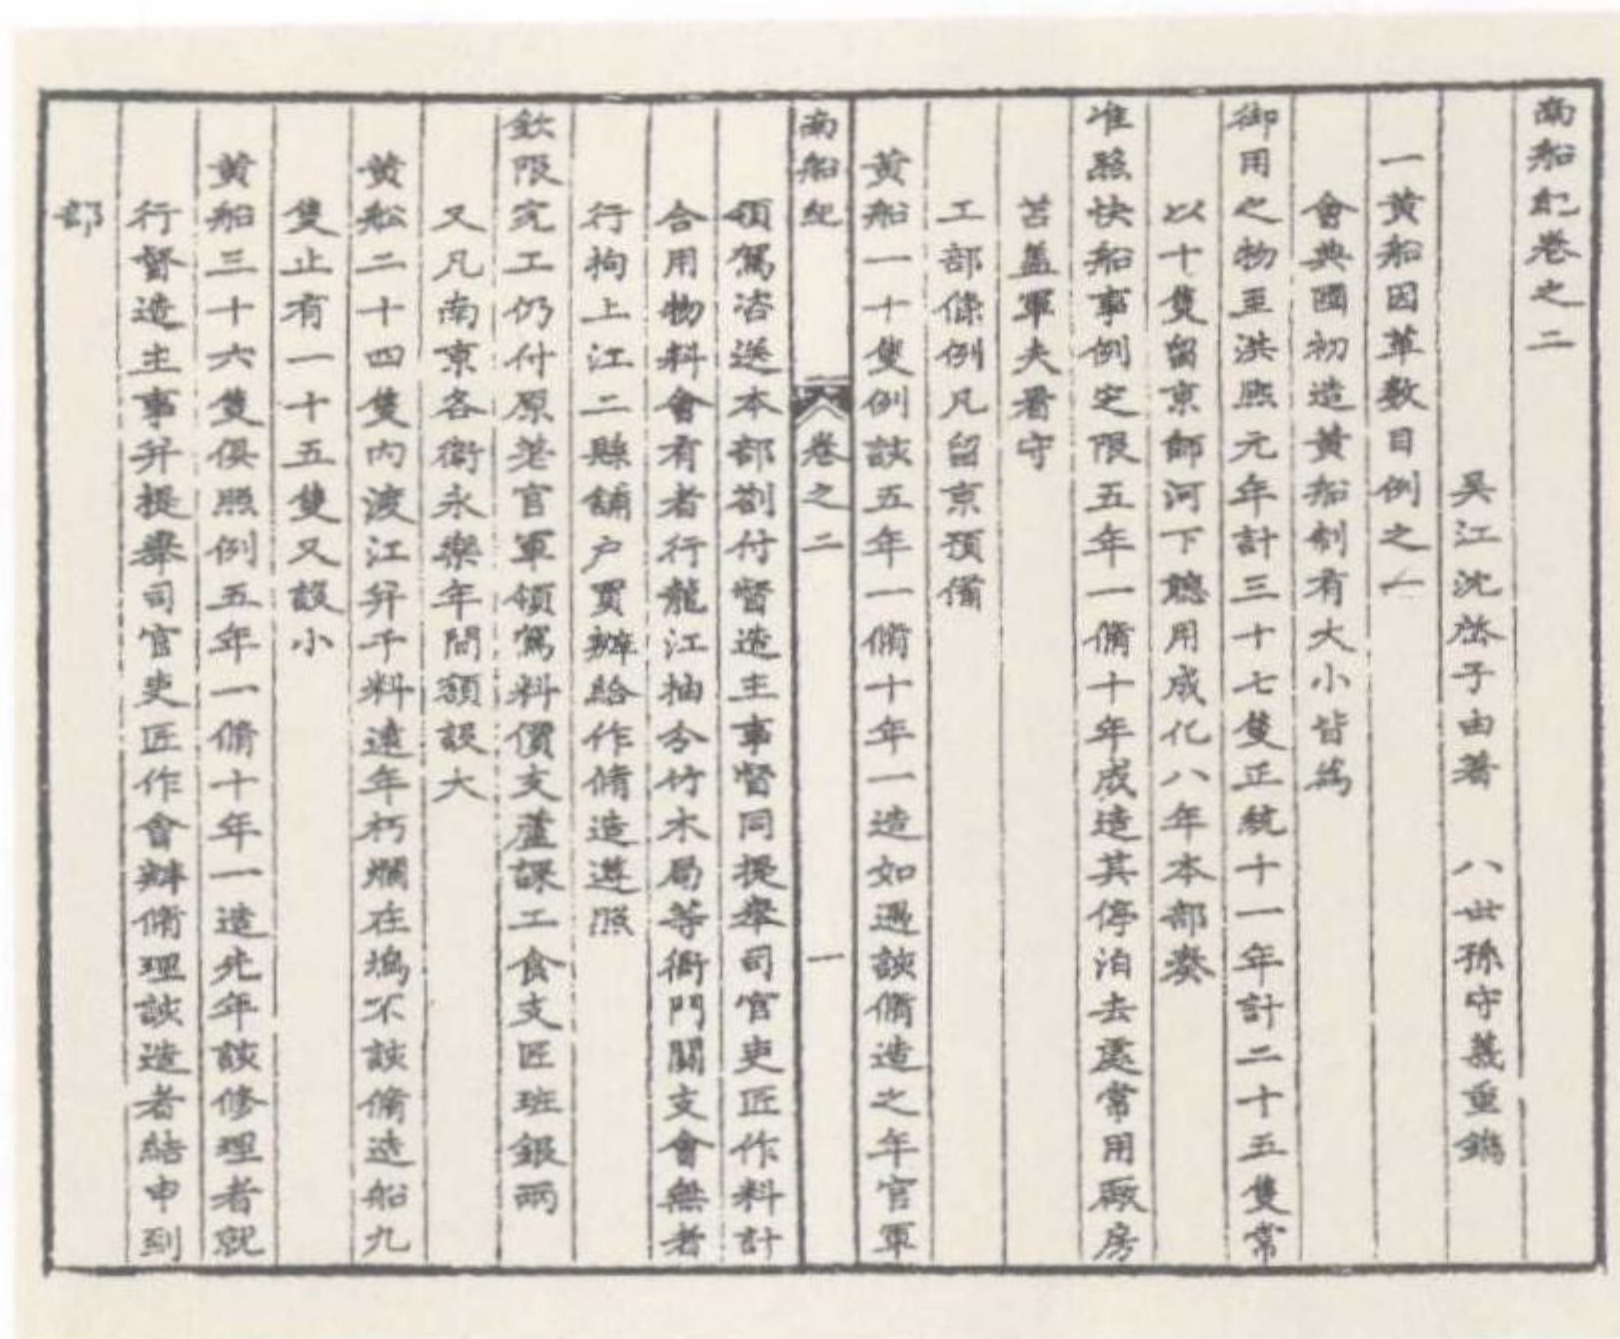 南船紀卷之二
吳江沈啓子由著　八世孫守義重鐫
一黃船因革數目例之一
會典國初造黃船制有大小皆爲
御用之物至洪熙元年計三十七隻正統十一年計二十五隻常
以十隻留京師河下聽用成化八年本部奏
准照快船事例定限五年一脩十年成造其停泊去處常用厰房
苫蓋軍夫看守
工部條例凡留京預備
黃船一十隻例該五年一脩十年一造如遇該脩造之年官軍
南船紀　卷之二　一
領駕咨送本部劄付督造主事督同提舉司官吏匠作料計
合用物料會有者行龍江抽分竹木局等衙門關支會無者
行拘上江二縣舖户買辦給作脩造遵照
欽限完工仍付原差官軍領駕料價支蘆課工食支匠班銀兩
又凡南京各衛永樂年間額設大
黃船二十四隻內渡江并千料遠年朽爛在塢不該脩造船九
隻止有一十五隻又設小
黃船三十六隻俱照例五年一脩十年一造先年該修理者就
行督造主事并提舉司官吏匠作會辦脩理該造者結申到
部